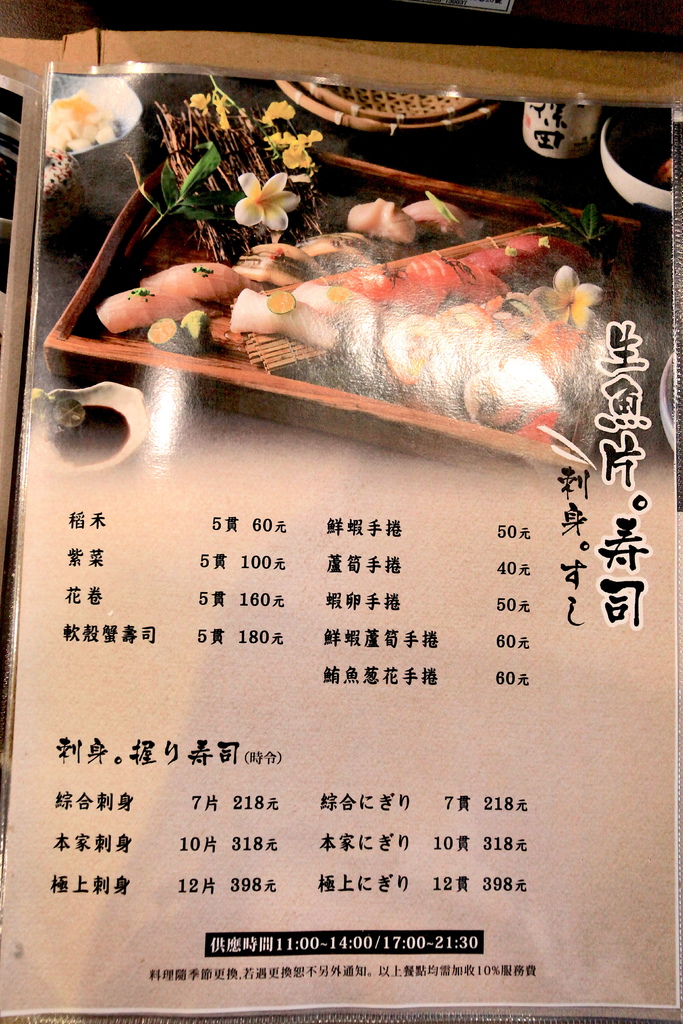 生魚片。寿司
刺身。すし
稻禾 5貫 60元
紫菜 5貫 100元
花卷 5貫 160元
軟殼蟹壽司 5貫 180元
鮮蝦手捲 50元
蘆筍手捲 40元
蝦卵手捲 50元
鮮蝦蘆筍手捲 60元
鮪魚葱花手捲 60元
刺身。握り寿司(時令)
綜合刺身 7片 218元
本家刺身 10片 318元
極上刺身 12片 398元
綜合にぎり 7貫 218元
本家にぎり 10貫 318元
極上にぎり 12貫 398元
供應時間11:00~14:00/17:00~21:30
料理隨季節更換,若遇更換恕不另外通知。以上餐點均需加收10%服務費